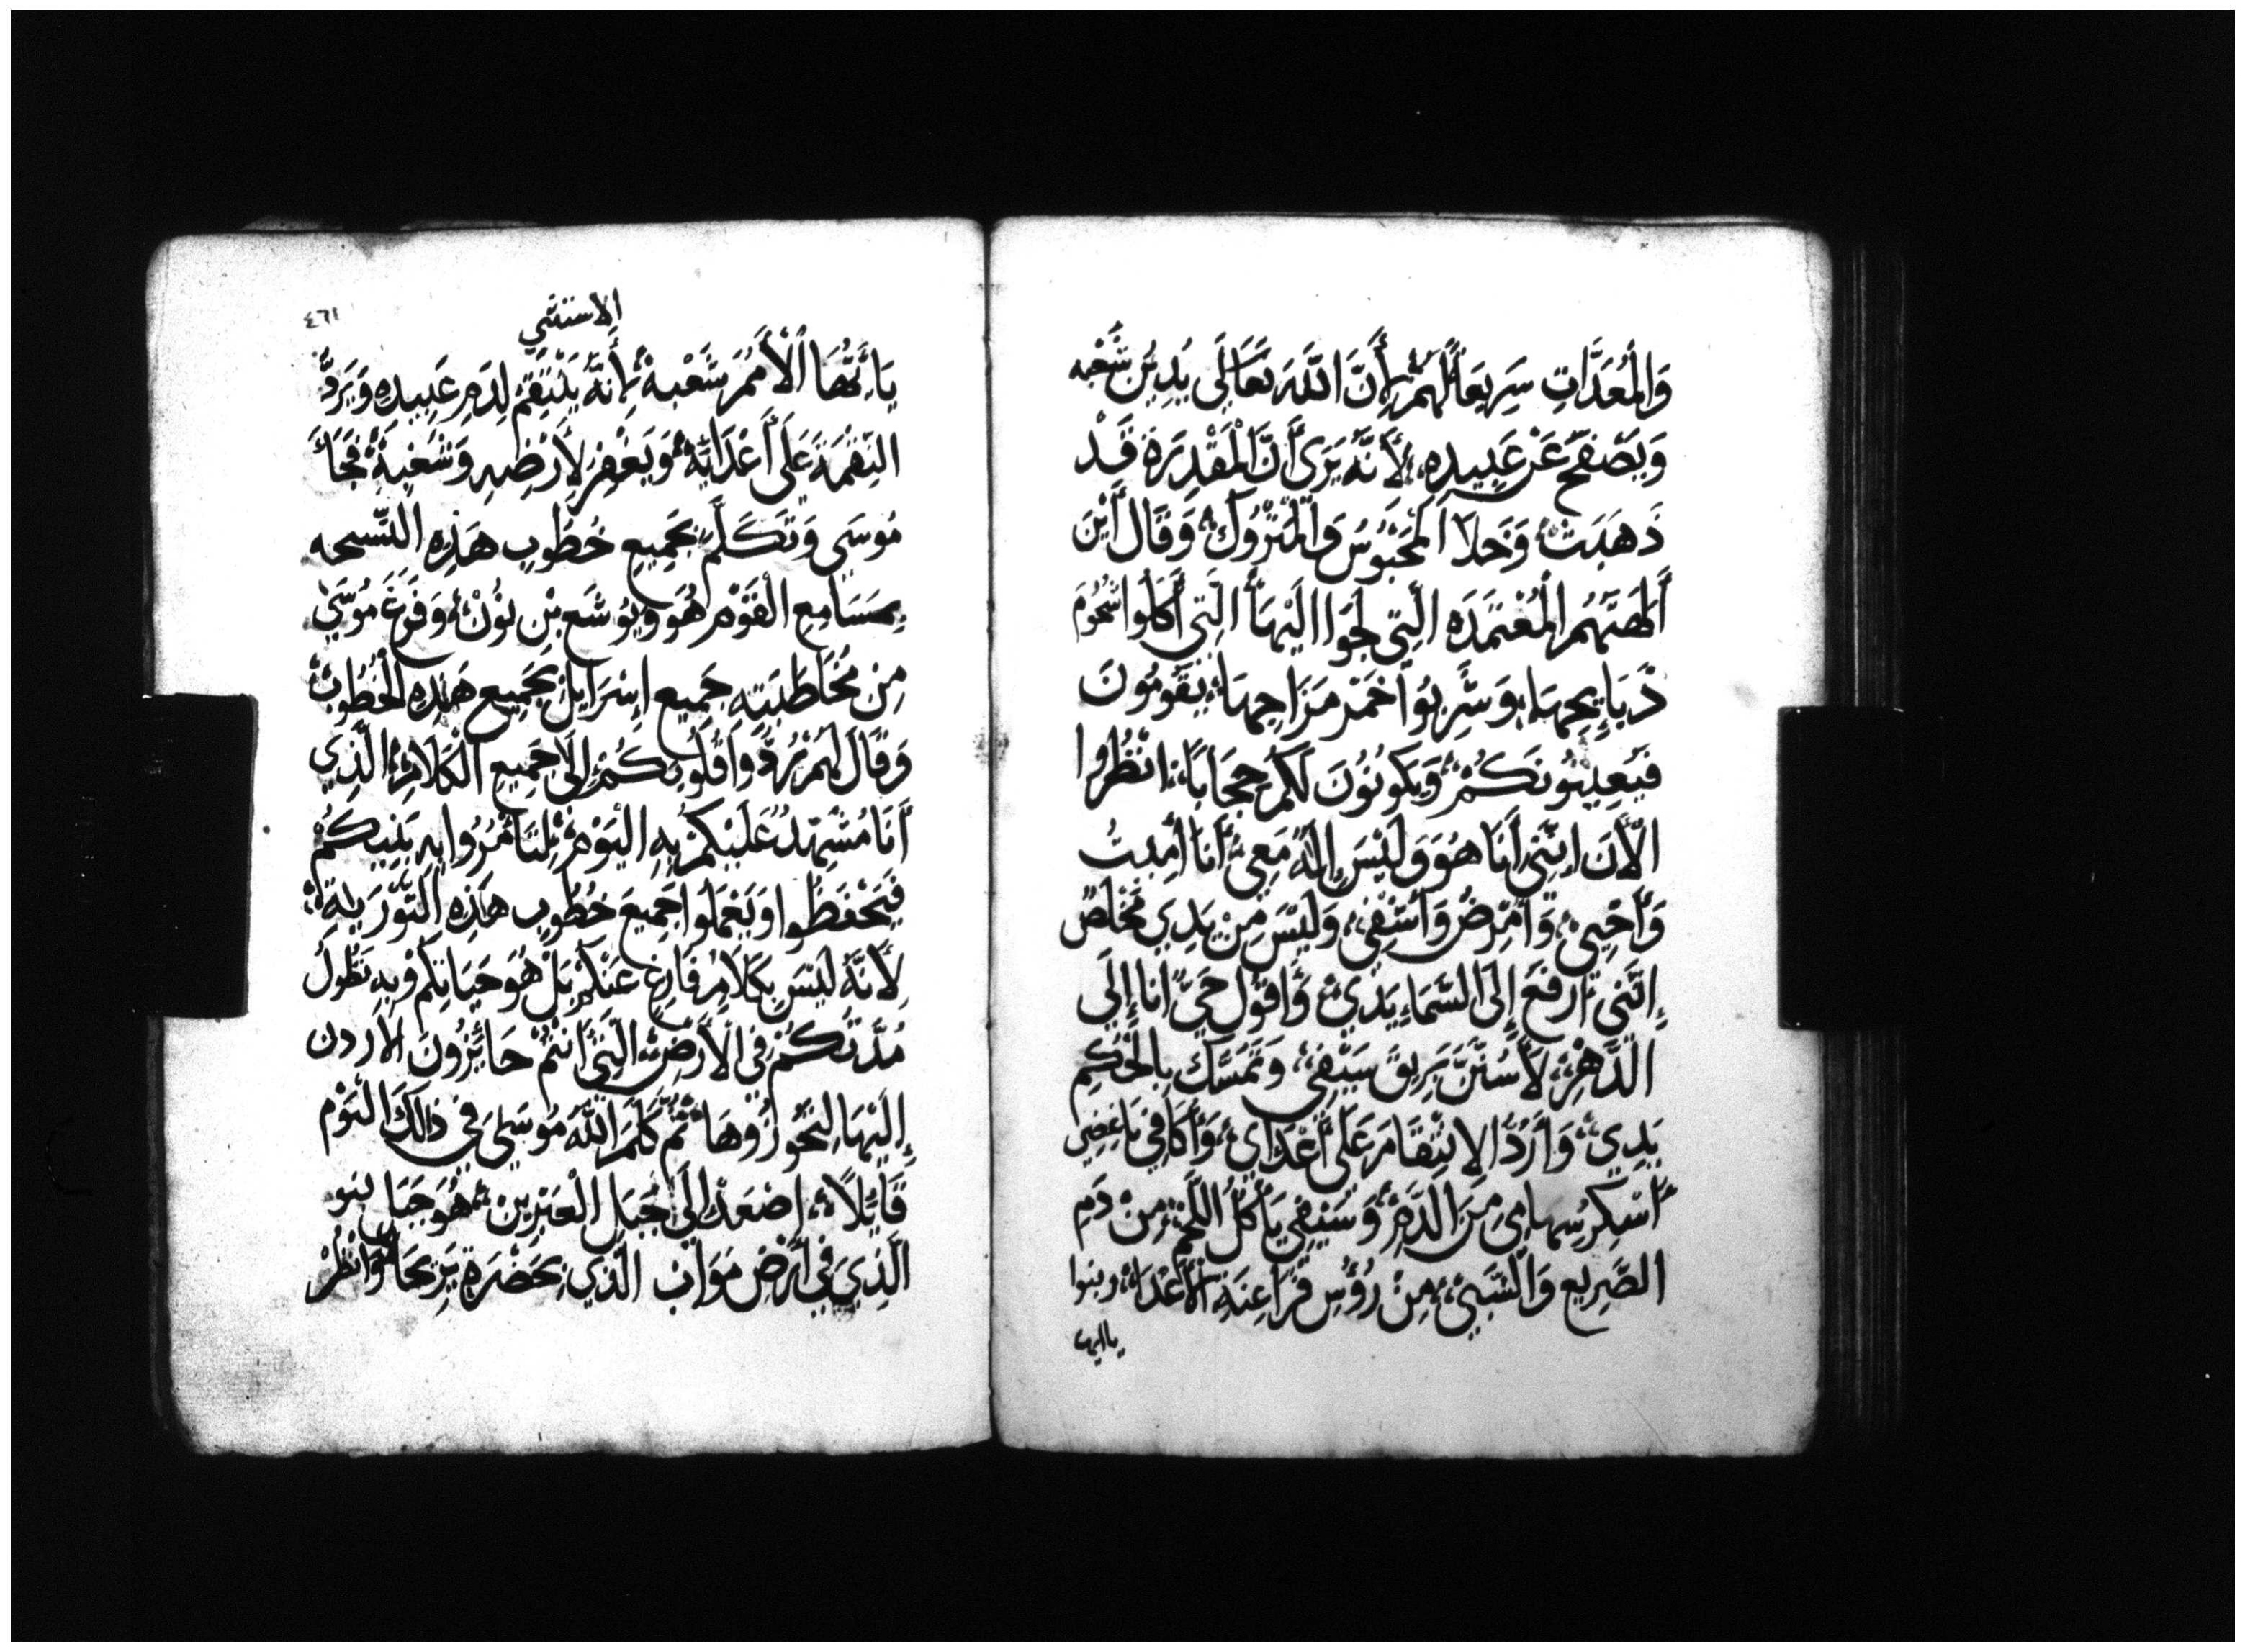 وَالْمُعَدَّاتِ سَرِيعًا لَهُمْ لِأَنَّ اللَّهَ تَعَالَى يَدِينُ شَعْبه
وَيَصْفَحُ عَنْ عَبِيدِهِ، لِأَنَّهُ يَرَى أَنَّ الْمَقْدِرَةَ قَدْ
ذَهَبَتْ، وَخَلَا الْمَحْبُوسُ وَالْمَتْرُوكُ، وَقَالَ أَيْنَ
أَلِهَتَهُمُ الْمُعْتَمَدَه الَّتِي لَجَوَا الَيْهَا الَّتِي أَكَلُوا شُحُومَ
ذَبَايِحِهَا، وَشَرِبُوا خَمْرَ مَزَاجِهَا، يَقُومُونَ
فَيُعِينُونَكُمْ، وَيَكُونُونَ لَكُمْ حِجَابًا، انْظُرُوا
الْآنَ اِنَّنِي أَنَا هُوَ وَلَيْسَ إِلَهٌ مَعِي أَنَا أُمِيتُ
وَأُحْيِي، وَأُمْرِضُ وَأَشْفِي، وَلَيْسَ مِنْ يَدِي مَخْلَصٌ
إِنَّنِي أَرْفَعُ إِلَى السَّمَاءِ يَدَيَّ، وَأَقُولُ حَيٌّ أَنَا إِلَى
الدَّهْرِ، لَأَسُنَّنَّ بَرِيقَ سَيْفِي، وَتَمَسَّكَ بِالْحُكْمِ
يَدِي، وَأَرُدُّ الِانْتِقَامَ عَلَى أَعْدَايَ، وَأُكَافِي بَاغِضِيَّ
أُسْكِرُ سِهامِي مِنَ الدَّمِ، وَسَيْفِي يَأْكُلُ اللَّحْمَ، مِنْ دَمِ
الصَّرِيعِ وَالسَّبْيِ، مِنْ رُؤُسِ فَرَاعِنَةِ الْأَعْدَاءِ،
ياايها
الاستثني
٤٦١
يَا أَيُّهَا الْأُمَمُ شَعْبهُ، لِأَنَّهُ يَنْتَقِمُ لِدَمِ عَبِيدِهِ وَيَرُدُّ
النِّقْمَةَ عَلَى أَعْدَايِهِ، وَيَغْفِرُ لِأَرْضِهِ وَشَعْبِهِ، فَجَاءَ
مُوسَى وَتَكَلَّمَ بِجَمِيعِ خُطُوبِ هَذِهِ التسبحه
بِمَسَامِعِ الْقَوْمِ هُوَ وَيُوشَع بْنِ نُونْ، وَفَرَغَ مُوسَى
مِنْ مُخَاطَبَتِهِ جَمِيعَ إِسْرَايِلَ بِجَمِيعِ هَذِهِ الْخُطُوبِ
وَقَالَ لَهُمْ رُدُّوا قُلُوبَكُمْ إِلَى جَمِيعِ الْكَلَامِ الَّذِي
أَنَا مُشْهِدٌ عَلَيْكُمْ بِهِ الْيَوْمَ، لِتَأْمُرُوا بِهِ بَنِيكُمْ
فَيَحْفَظُوا وَيَعْمَلُوا جَمِيعَ خُطُوبِ هَذِهِ التَّوْرَيةِ
لِأَنَّهُ لَيْسَ بِكَلَامٍ فَارِغٍ عَنْكُمْ بَلْ هُوَ حَيَاتِكُمْ وَبِهِ تَطُولُ
مُدَّتُكُمْ فِي الْأَرْضِ الَّتِي أَنْتُمْ جَائِزُونَ الأردن
إِلَيْهَا لِتَجُوزُوهَا، ثُمَّ كَلَّمَ اللَّهُ مُوسَى فِي ذَالِكَ الْيَوْمِ
قَايِلًا، إِصْعَدْ إِلَى جَبَلِ الْعَبَرِينَ، هُوَ جَبَل نبو
الَّذِي فِي أَرْضِ مَوَاب الَّذِي بِحَضْرَةِ يَرِيحَا وَانْظُرْ